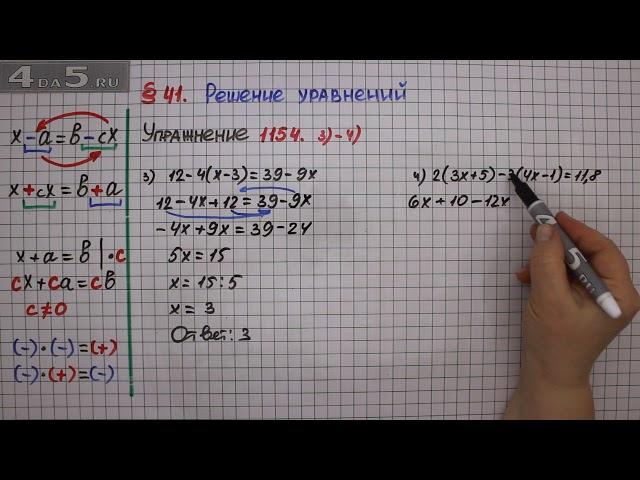 4DA5.RU
§ 41. Решение уравнений
Упражнение 1154. 3)-4)
x - a = b - cx
x + cx = b + a
x + a = b | · c
cx + ca = cb
c ≠ 0
(-) · (-) = (+)
(-) · (+) = (-)
3) 12 - 4(x - 3) = 39 - 9x
12 - 4x + 12 = 39 - 9x
- 4x + 9x = 39 - 24
5x = 15
x = 15 : 5
x = 3
Ответ: 3
4) 2(3x + 5) - 3(4x - 1) = 11,8
6x + 10 - 12x
4DA5.RU